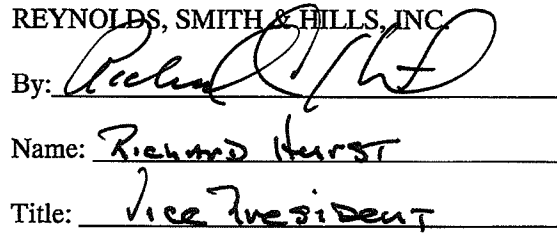 REYNOLDS, SMITH & HILLS, INC.
By:
Name: Richard Hurst
Title: Vice President